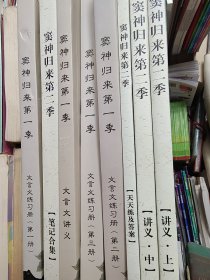 窦神归来第一季
文言文练习册(第一册)
窦神归来第二季
【笔记合集】
窦神归来第一季
文言文讲义
窦神归来第一季
文言文练习册(第三册)
窦神归来第一季
文言文练习册(第二册)
窦神归来第二季
【天天练及答案】
窦神归来第二季
【讲义·中】
窦神归来第二季
【讲义·上】